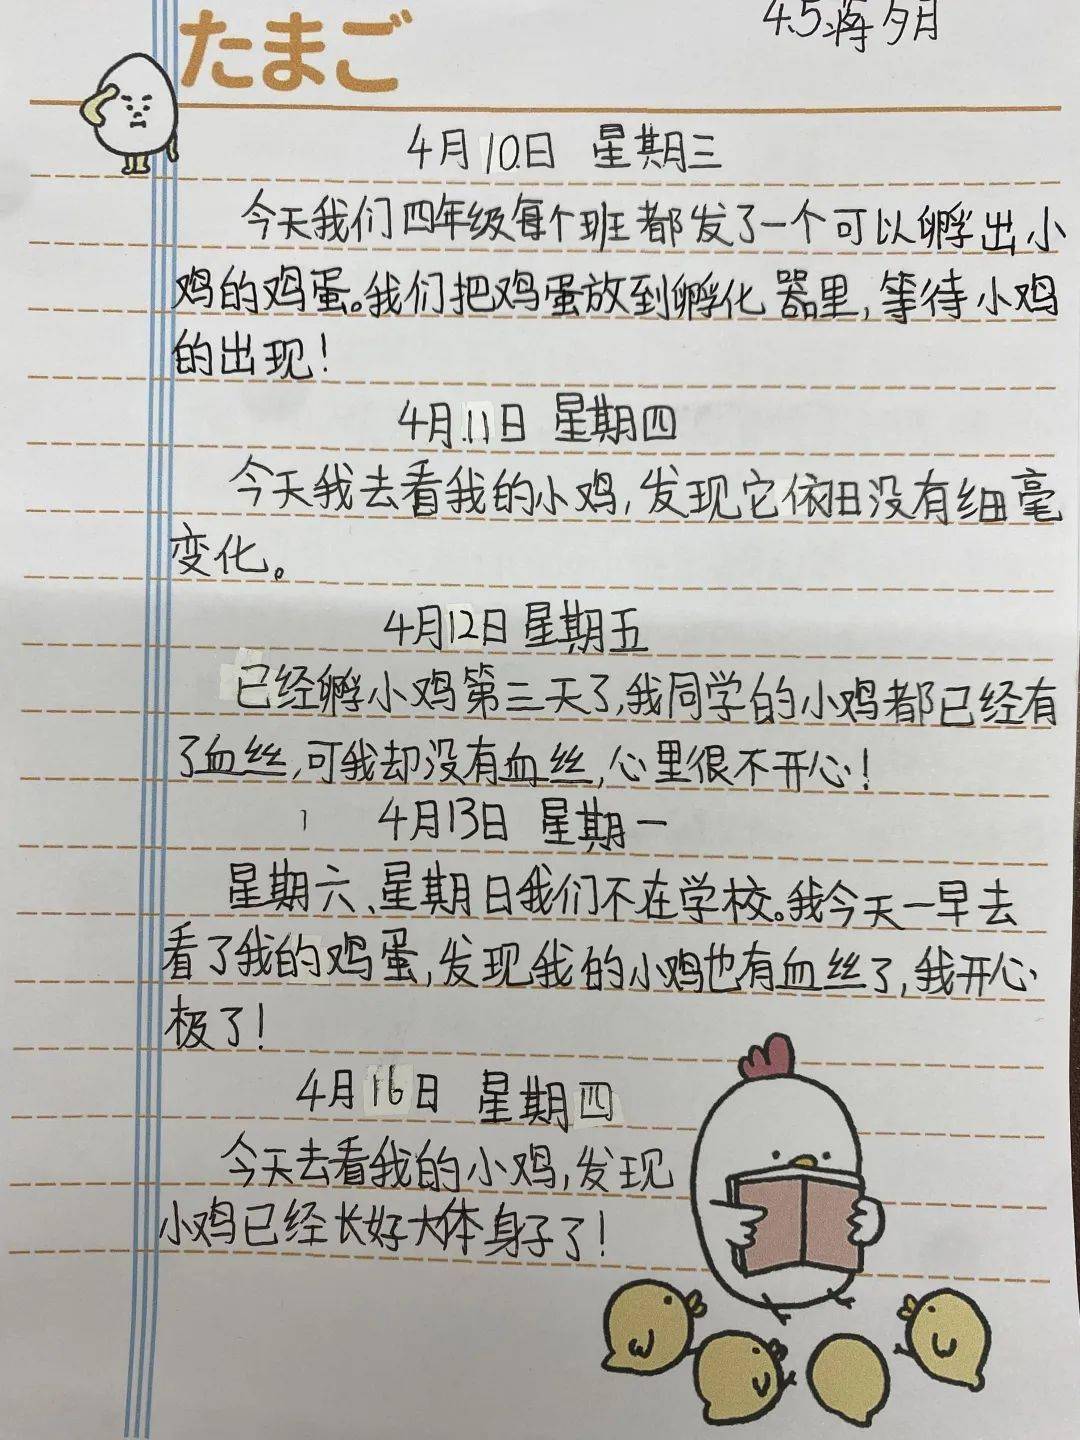 たまご
4.5 蒋夕月
4月10日 星期三
今天我们四年级每个班都发了一个可以孵出小
鸡的鸡蛋。我们把鸡蛋放到孵化器里,等待小鸡
的出现!
4月11日 星期四
今天我去看我的小鸡,发现它依旧没有细毫
变化。
4月12日 星期五
已经孵小鸡第三天了,我同学的小鸡都已经有
了血丝,可我却没有血丝,心里很不开心!
4月13日 星期一
星期六、星期日我们不在学校。我今天一早去
看了我的鸡蛋,发现我的小鸡也有血丝了,我开心
极了!
4月16日 星期四
今天去看我的小鸡,发现
小鸡已经长好大体身子了!